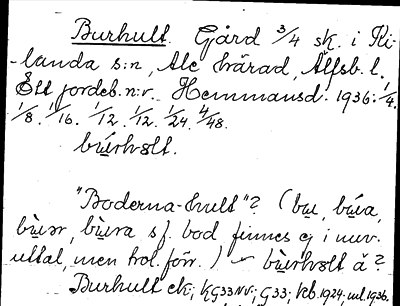 Burhult. Gård 3/4 sk. i Ki-
landa s:n, Ale härad, Älfsb. l.
Ett jordeb. n:r. Hemmansd. 1936: 1/4.
1/8. 1/16. 1/12. 1/12. 1/24. 4/48.
"Boderna-hult"? (bu, búa,
bùər, bùəra sf. bod finnes ej i nuv.
uttal, men trol. förr.) ~ bùrhəlt ä?
Burhult ek; kG33NV; G33; kb. 1924; ul. 1936.